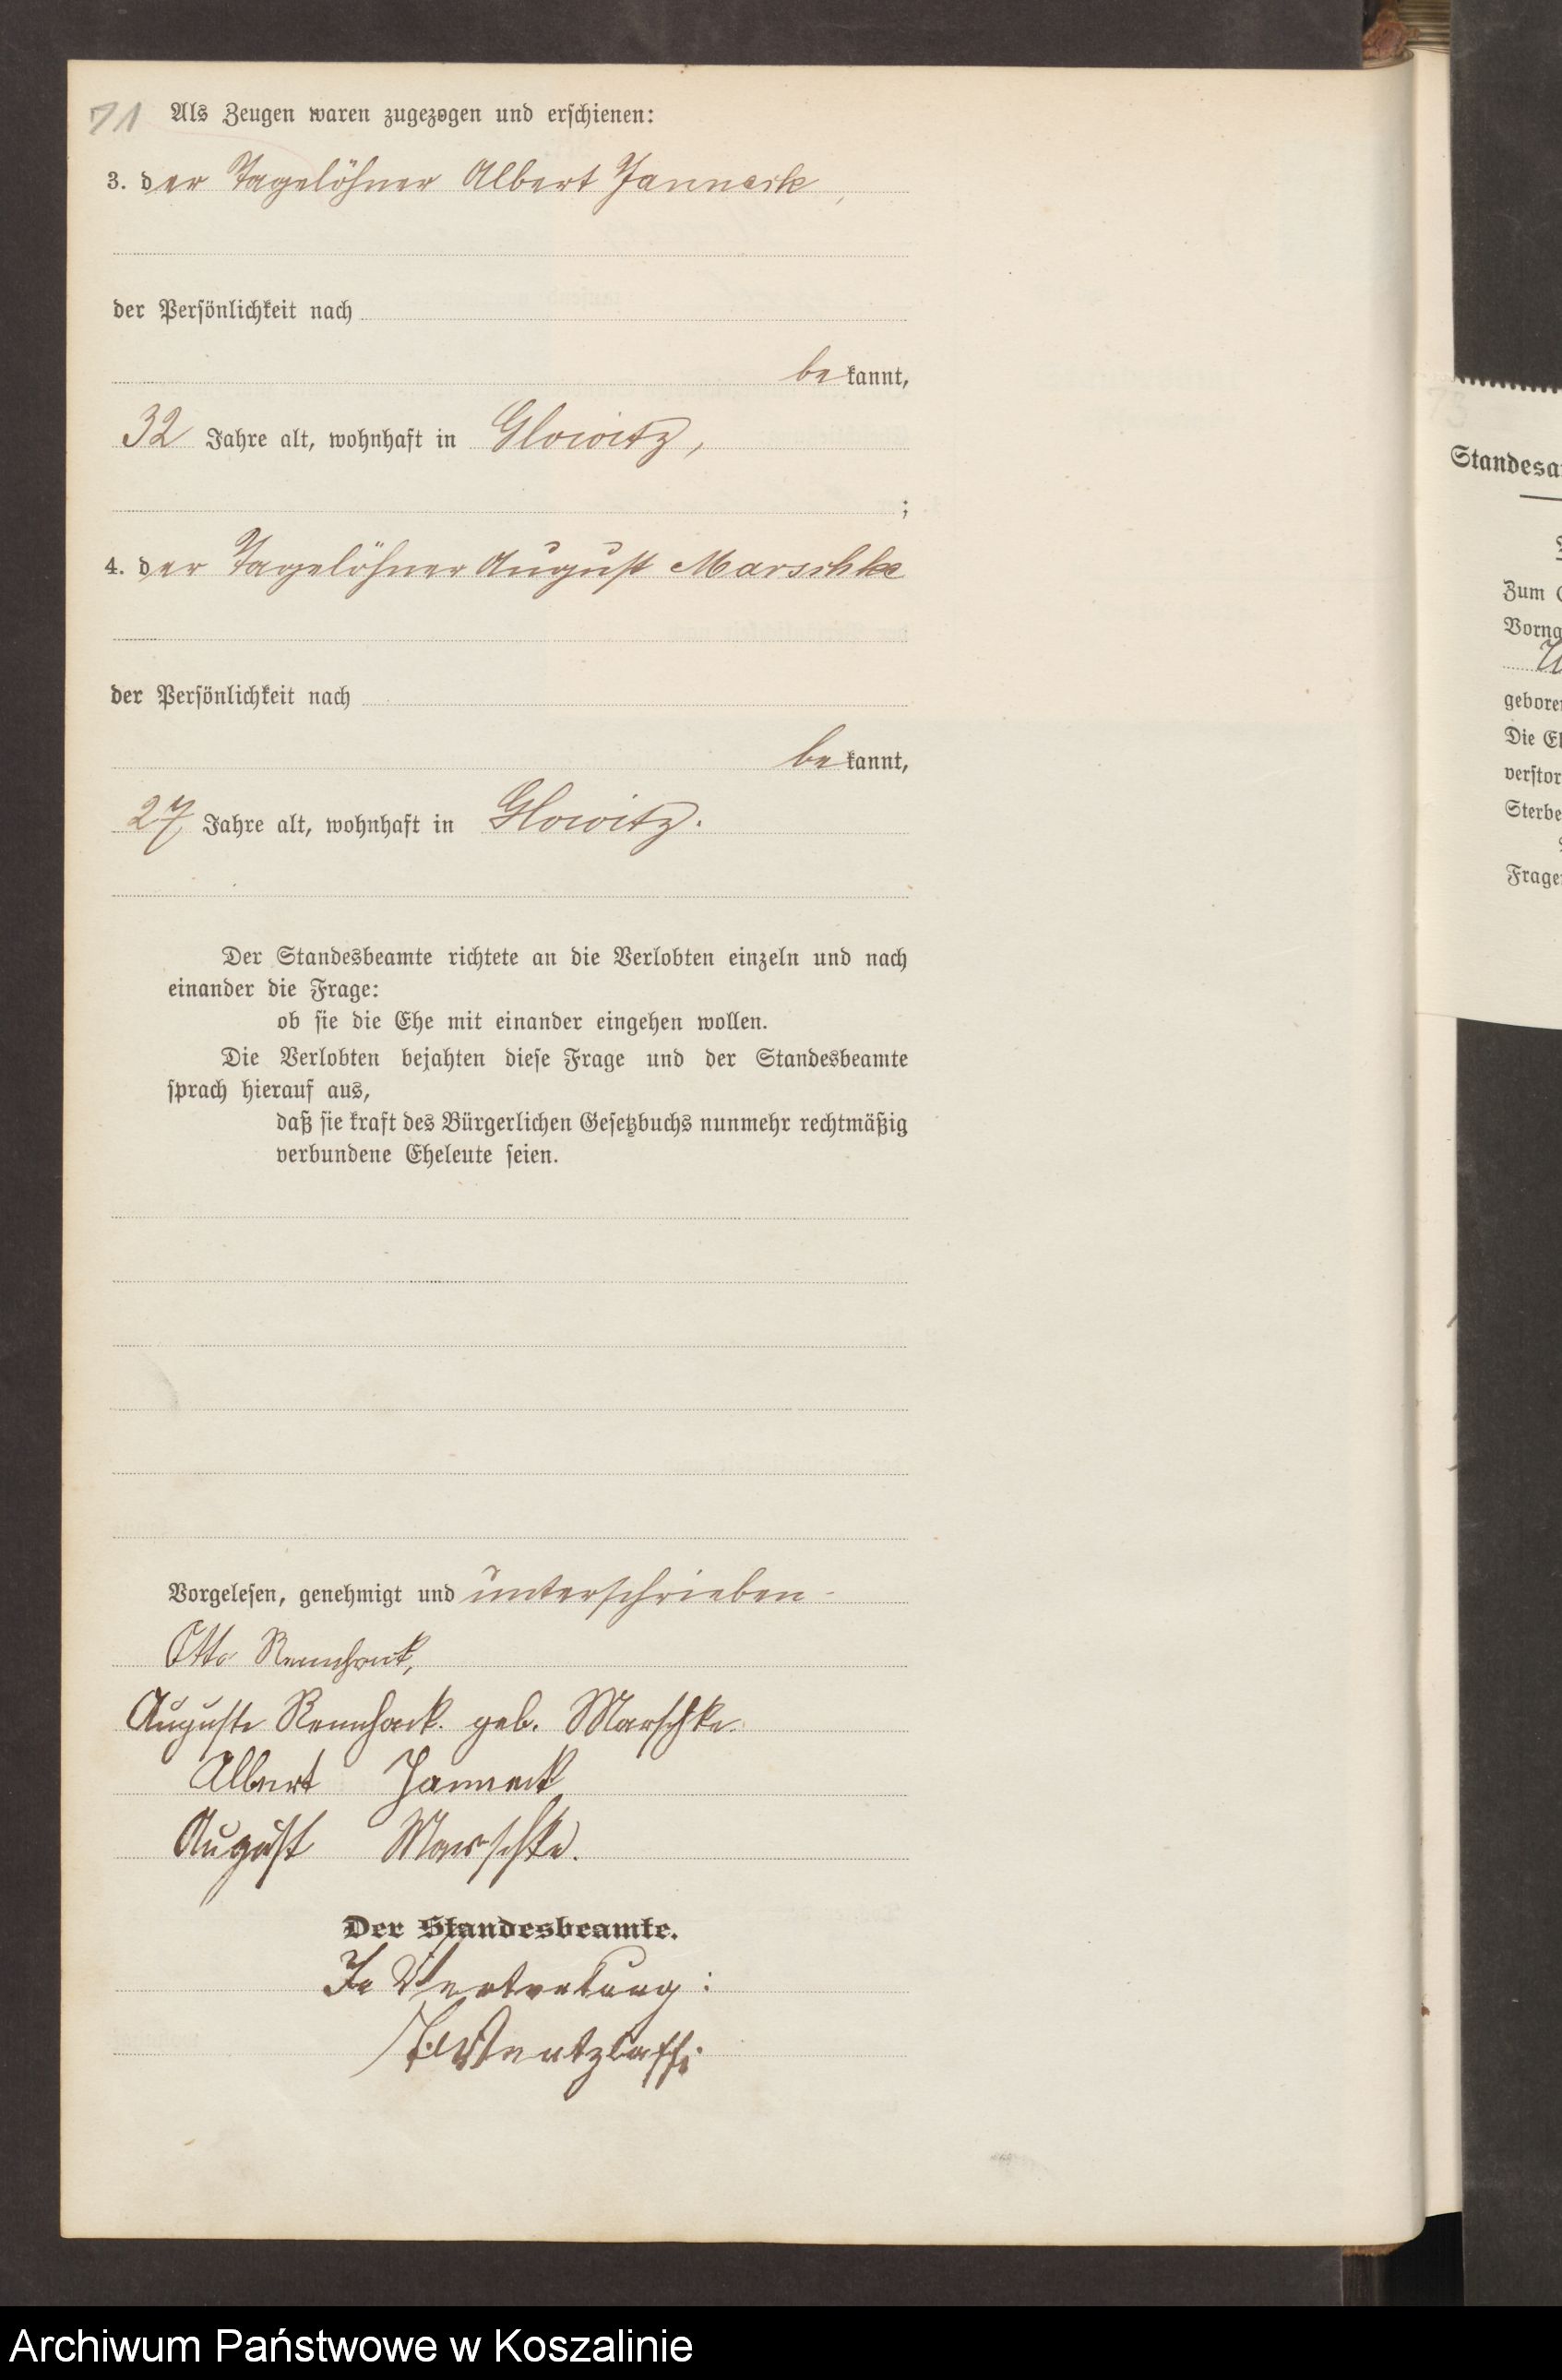 71 Als Zeugen waren zugezogen und erschienen:
3. der Tagelöhner Albert Janneck,
der Persönlichkeit nach
bekannt,
32 Jahre alt, wohnhaft in Glowitz,
;
4. der Tagelöhner August Marschke
der Persönlichkeit nach
bekannt,
27 Jahre alt, wohnhaft in Glowitz.
Der Standesbeamte richtete an die Verlobten einzeln und nach
einander die Frage:
ob sie die Ehe mit einander eingehen wollen.
Die Verlobten bejahten diese Frage und der Standesbeamte
sprach hierauf aus,
daß sie kraft des Bürgerlichen Gesetzbuchs nunmehr rechtmäßig
verbundene Eheleute seien.
Vorgelesen, genehmigt und unterschrieben
Otto Rennhack,
Auguste Rennhack. geb. Marschke.
Albert Janneck
August Marschke.
Der Standesbeamte.
In Vertretung:
Wentzlaff.
73
Standesa
Zum
Vorna
gebore
Die E
verstor
Sterbe
Frage
Archiwum Państwowe w Koszalinie